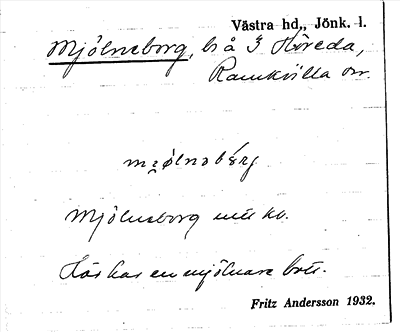 Västra hd., Jönk. l.
Mjölneborg, bå 3 Höreda,
Ramkvilla sn.
mjølnəbǿrj
Mjölneborg utt. ko.
Här har en mjölnare bott.
Fritz Andersson 1932.